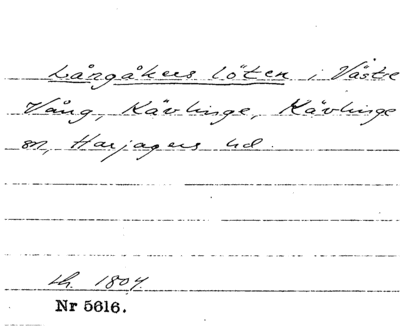 Långåkers löten i Västre
Vång, Kävlinge, Kävlinge
sn, Harjagers hd.
lh. 1804.
Nr 5616.